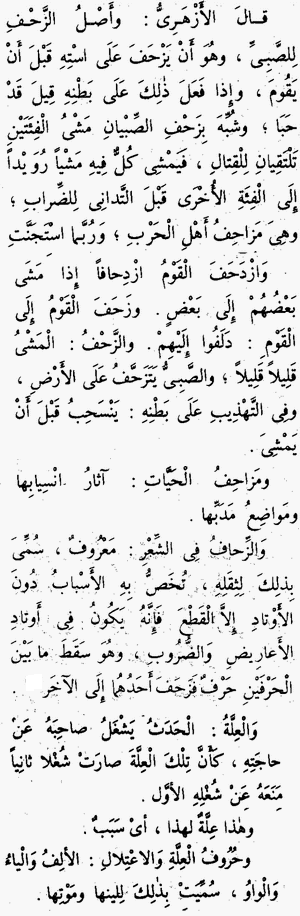 قَالَ الْأَزْهَرِىُّ : وأَصْلُ الزَّحْفِ
لِلصَّبِىِّ ، وهُوَ أَنْ يَزْحَفَ عَلَى اسْتِهِ قَبْلَ أَنْ
يَقُومَ ، وإِذا فَعَلَ ذٰلِكَ عَلَى بَطْنِهِ قِيلَ قَدْ
حَبَا ؛ وشُبِّهَ بِزَحْفِ الصِّبْيانِ مَشْىُ الْفِئَتَيْنِ
تَلْتَقِيانِ لِلْقِتالِ ، فَيَمْشِى كُلٌّ فِيهِ مَشْياً رُوَيْداً
إِلَى الْفِئَةِ الْأُخْرَى قَبْلَ التَّدانِى لِلضِّرابِ ؛
وهِىَ مَزَاحِفُ أَهْلِ الْحَرْبِ ؛ ورُبَّما اسْتَجَنَّتِ
وازْدَحَفَ الْقَوْمُ ازْدِحافاً إِذا مَشَى
بَعْضُهُمْ إِلَى بَعْضٍ . وزَحَفَ الْقَوْمُ إِلَى
الْقَوْمِ : دَلَفُوا إِلَيْهِمْ . والزَّحْفُ : الْمَشْىُ
قَلِيلاً قَلِيلاً ؛ والصَّبِىُّ يَتَزَحَّفُ عَلَى الْأَرْضِ ،
وفِى التَّهْذِيبِ عَلَى بَطْنِهِ : يَنْسَحِبُ قَبْلَ أَنْ
يَمْشِىَ .
ومَزاحِفُ الْحَيَّاتِ : آثارُ انْسِيابِها
ومَواضِعُ مَدَبِّها .
وَالزِّحافُ فِى الشِّعْرِ : مَعْرُوفٌ ، سُمِّىَ
بِذلِكَ لِثِقَلِهِ ، تُخَصُّ بِهِ الْأَسْبابُ دُونَ
الْأَوْتادِ إِلاَّ الْقَطْعَ فَإِنَّهُ يَكُونُ فِى أَوتادِ
الْأَعارِيضِ والضُّرُوبِ ، وهُوَ سَقَطَ مابَيْنَ
الْحَرْفَيْنِ حَرْفٌ فَزَحَفَ أَحَدُهُما إِلَى الآخَرِ .
وَالْعِلَّةُ : الْحَدَثُ يَشْغَلُ صاحِبَهُ عَنْ
حاجَتِهِ ، كَأَنَّ تِلْكَ الْعِلَّةَ صارَتْ شُغْلا ثانِياً
مَنَعَهُ عَنْ شُغْلِهِ الأَوَّل .
وهٰذا عِلَّةٌ لهذا ، أىْ سَبَبٌ .
وحُرُوفُ الْعِلَّةِ وَالاعْتِلالِ : الأَلِفُ وَالْياءُ
وَالْواوُ ، سُمِّيَتْ بِذَلِكَ لِلِينها ومَوْتِها .